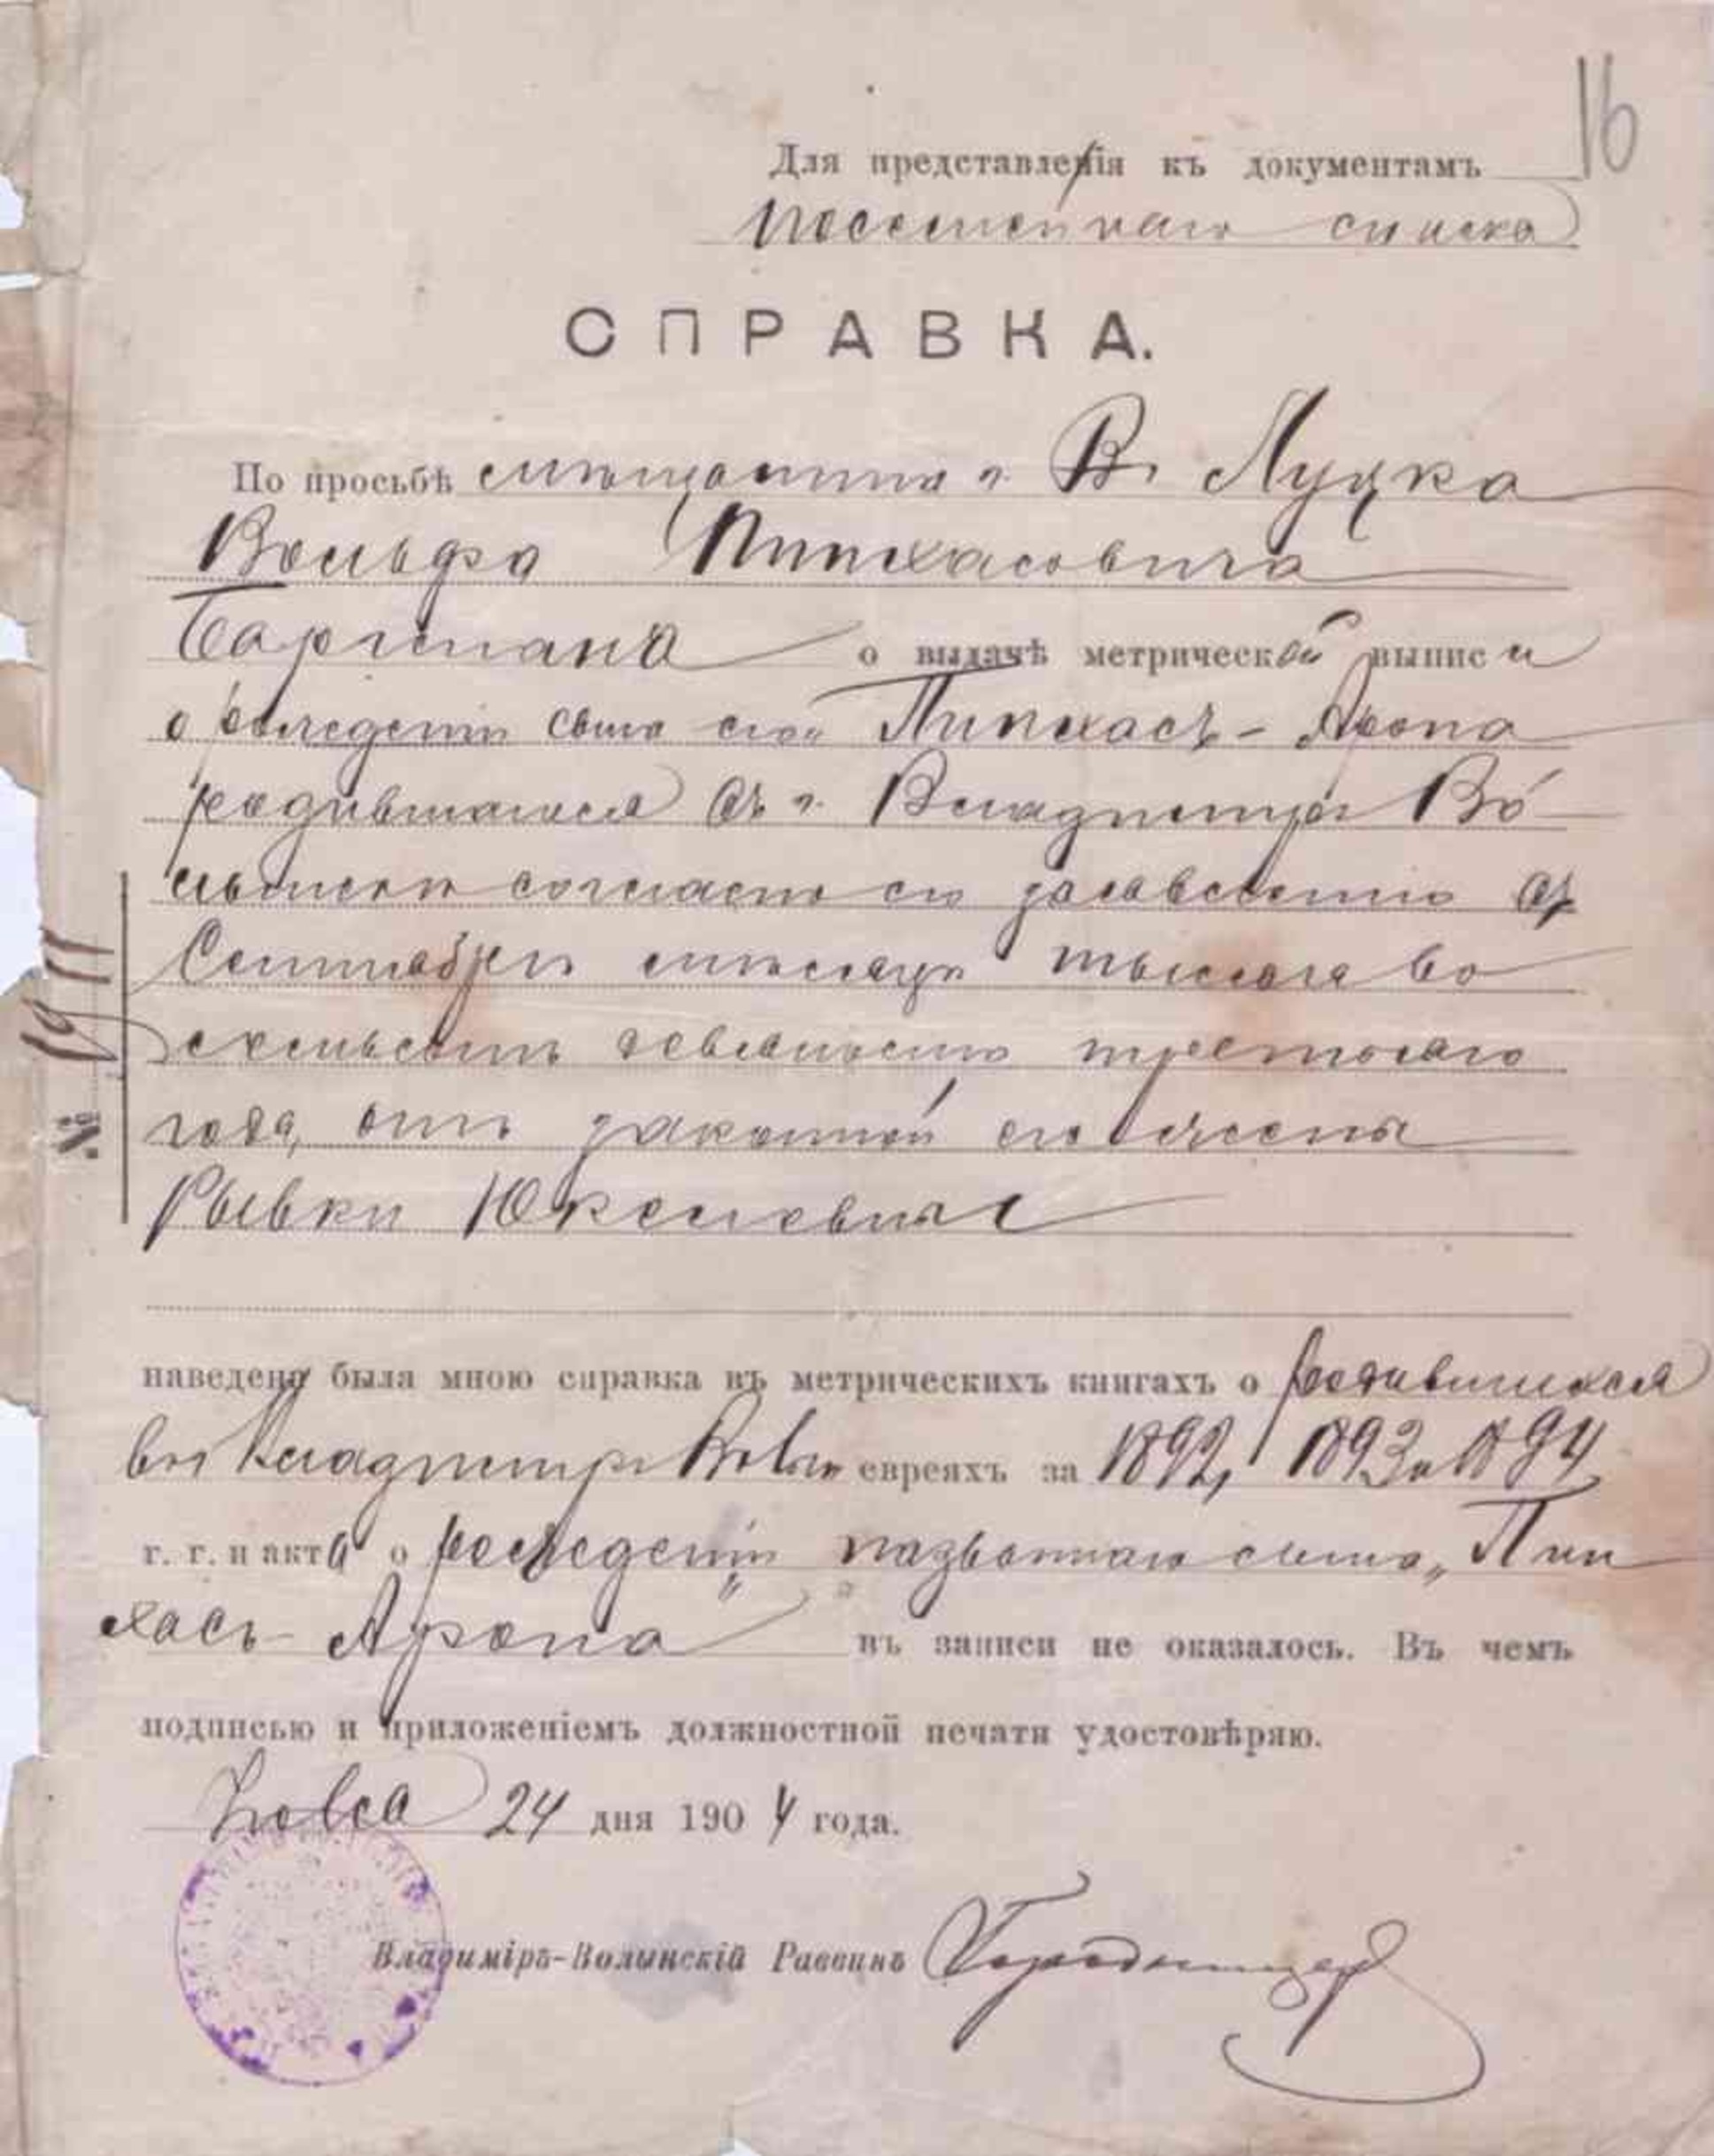 16
Для представленія къ документамъ
посемейнаго списка
СПРАВКА.
По просьбѣ мѣщанина г. В. Луцка
Вольфа Пинхасовича
Баргмана о выдачѣ метрической выписи
о рожденіи своего сына Пинхасъ-Арона
родившагося въ г. Владимірѣ Во-
лынскѣ согласно его заявленію въ
Сентябрѣ мѣсяцѣ тысяча во
семьсотъ девяносто третьяго
года, отъ законной его жены
Рывки Юкелевны
№ 19
наведена была мною справка въ метрическихъ книгахъ о родившихся
въ г. Владимірѣ Вол. евреяхъ за 1892, 1893 и 1894
г. г. и акта о рожденіи названнаго сына „Пин
хасъ Арона" въ записи не оказалось. Въ чемъ
подписью и приложеніемъ должностной печати удостовѣряю.
24 дня 1904 года.
Владиміръ-Волынскій Раввинъ